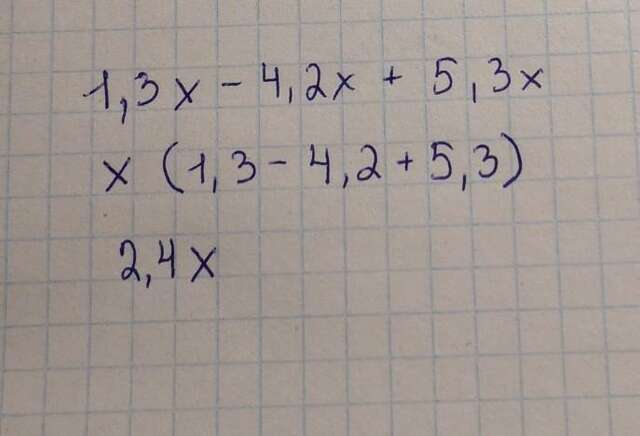 1,3x - 4,2x + 5,3x
x (1,3 - 4,2 + 5,3)
2,4x